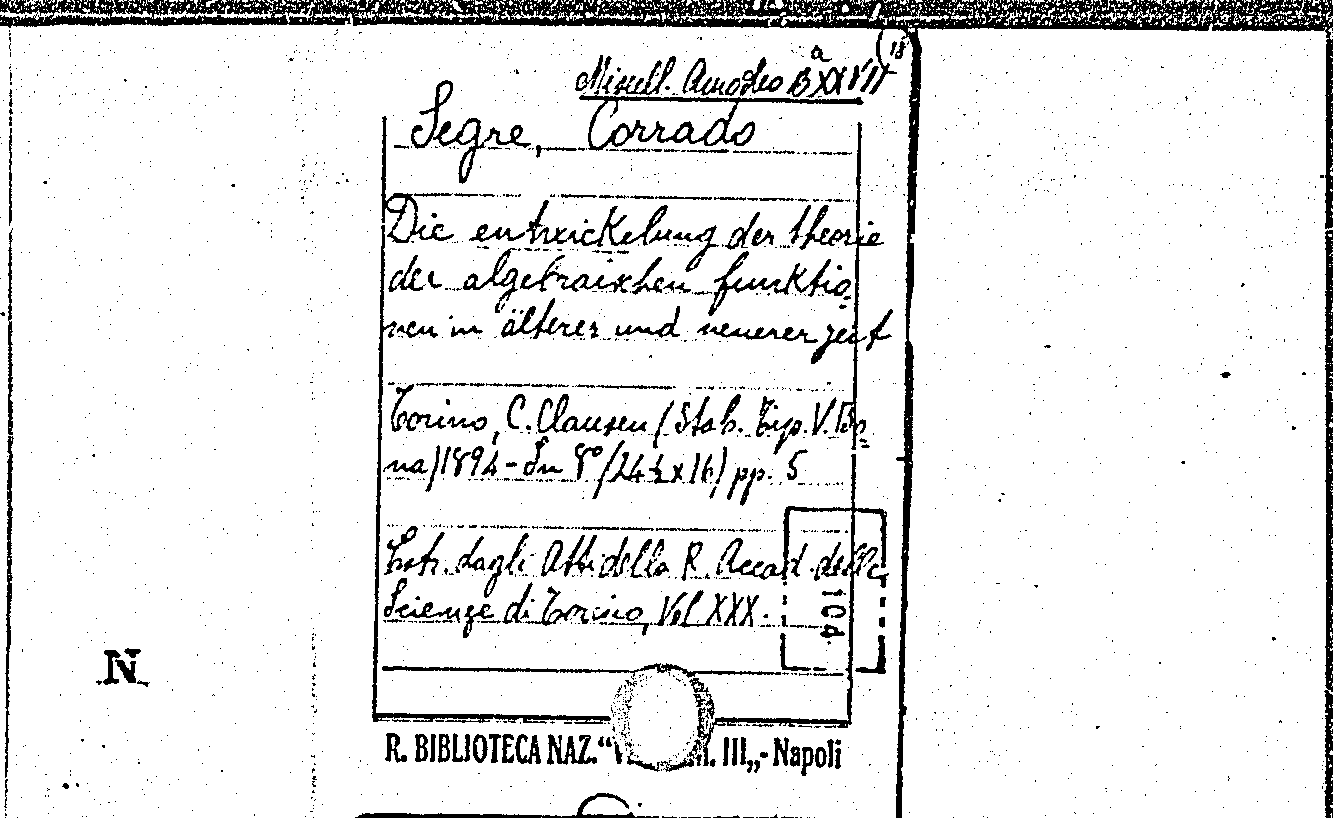 18
Miscell. Amodeo B XXVII a
Segre, Corrado
Die entwickelung der theorie
der algebraischen funktio-
nen in älterer und neuerer zeit
Torino, C. Clausen (Stab. Tip. V. Bo=
na) 1894 - In 8° (24½ x 16) pp. 5
Estr. dagli Atti della R. Accad. delle
Scienze di Torino, Vol XXX.
104
N
R. BIBLIOTECA NAZ. “ M. III„ - Napoli